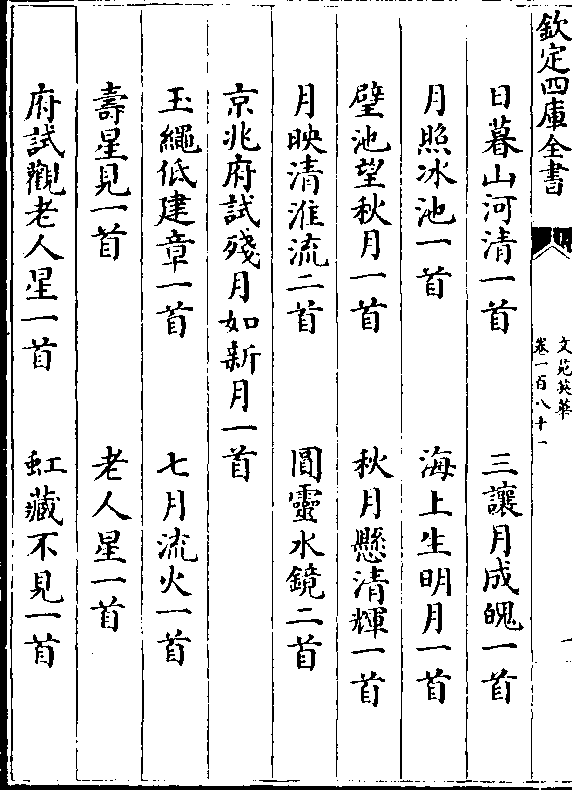 欽定四庫全書
文苑英華
卷一百八十一
日暮山河清一首　三讓月成魄一首
月照冰池一首　海上生明月一首
璧池望秋月一首　秋月懸清輝一首
月映清淮流二首　圓靈水鏡二首
京兆府試殘月如新月一首
玉繩低建章一首　七月流火一首
壽星見一首　老人星一首
府試觀老人星一首　虹藏不見一首